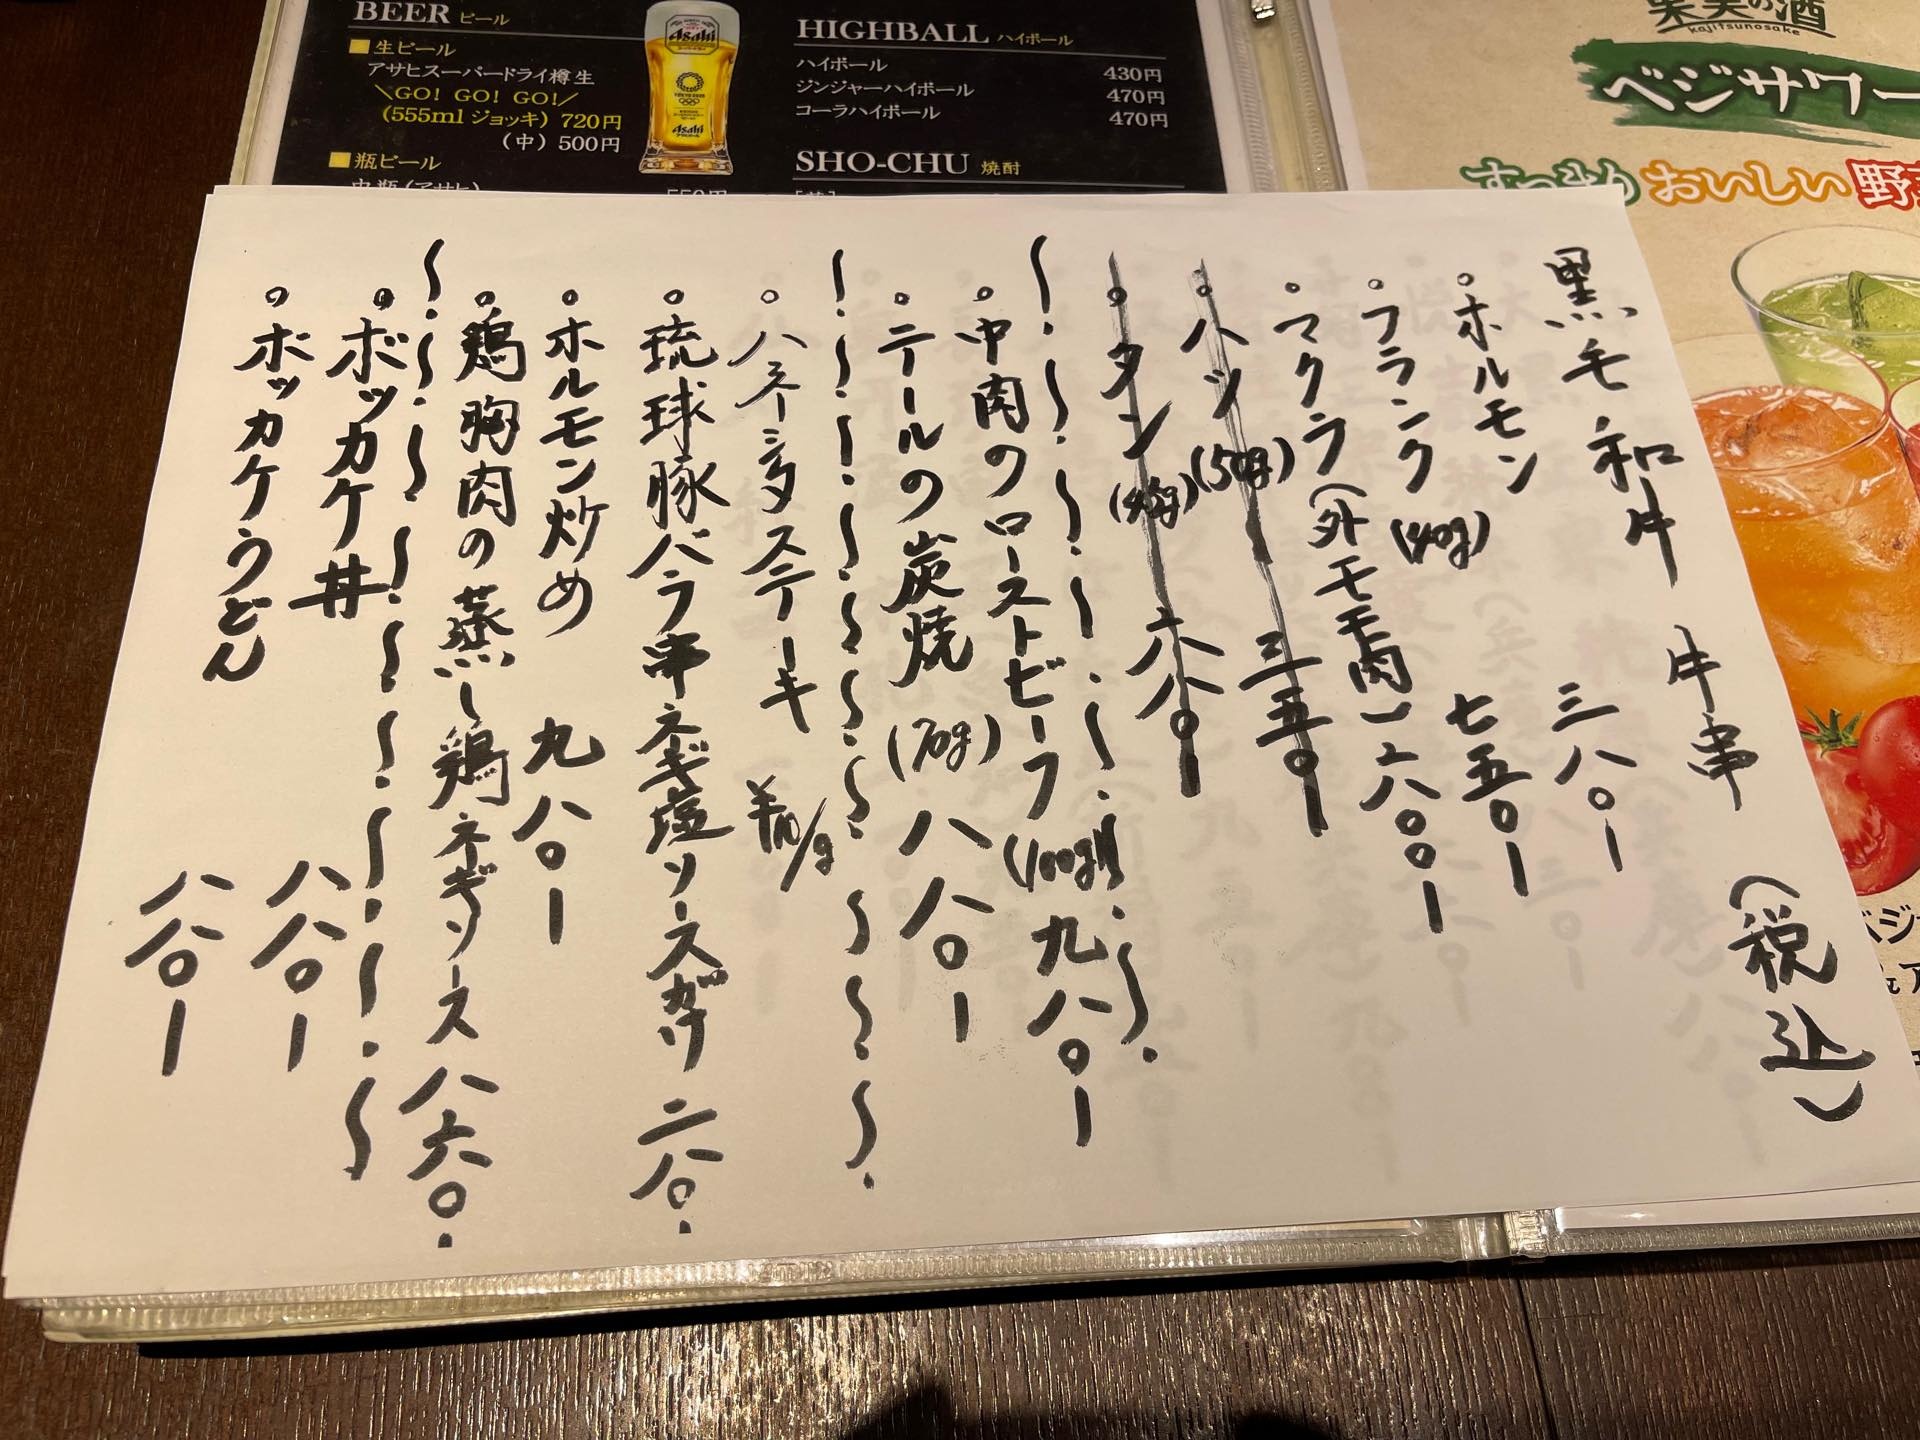 BEER ビール
生ビール
アサヒスーパードライ樽生
\GO! GO! GO!/
(555ml ジョッキ) 720円
(中) 500円
瓶ビール
中瓶(アサヒ) 550円
Asahi
Asahi
HIGHBALL ハイボール
ハイボール 430円
ジンジャーハイボール 470円
コーラハイボール 470円
SHO-CHU 焼酎
果実の酒
kajitsunosake
ベジサワー
すっきりおいしい野菜
黒毛和牛 牛串 (税込)
。ホルモン 三八〇ー
。フランク(40g) 七五〇ー
。マクラ(外モモ肉) 六〇〇ー
。ハツ(50g) 三五〇ー
。タン 六八〇ー
。中肉のローストビーフ(100g) 九八〇ー
。テールの炭焼(70g) 八八〇ー
。ハネシタステーキ ¥10/g
。琉球豚バラ串ネギ塩ソースガケ 二八〇.
。ホルモン炒め 九八〇ー
。鶏胸肉の蒸し鶏ネギソース 八六〇.
。ボッカケ丼 八八〇ー
。ボッカケうどん 八八〇ー